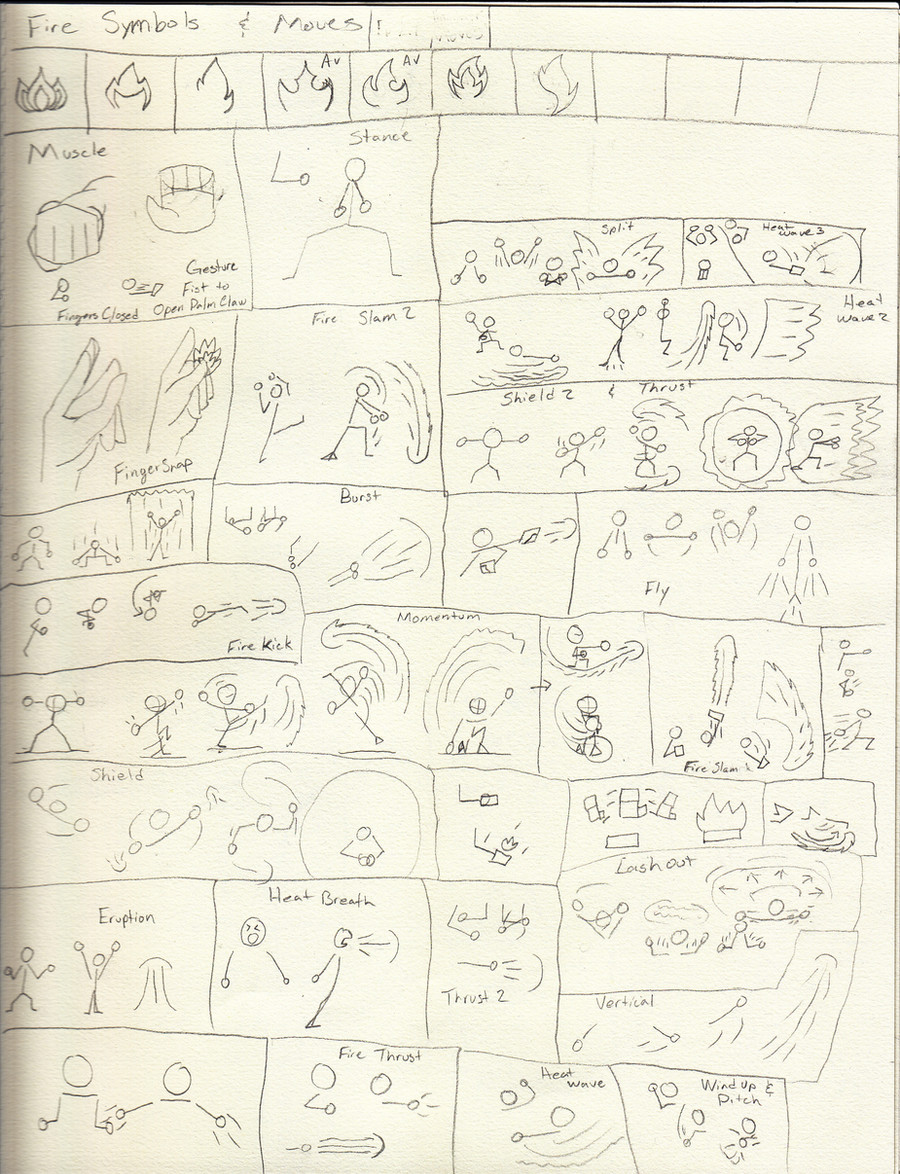 Fire Symbols & Moves!
Av
Av
Muscle
Gesture
Fist to
Open Palm Claw
Fingers Closed
Stance
Split
Heat
wave 3
Heat
Wave 2
Fire Slam 2
Shield 2 & Thrust
Fingersnap
Burst
Fly
Fire Kick
Momentum
Fire Slam
Shield
Lash out
Eruption
Heat Breath
Thrust 2
Vertical
Fire Thrust
Heat
wave
Wind up &
Pitch